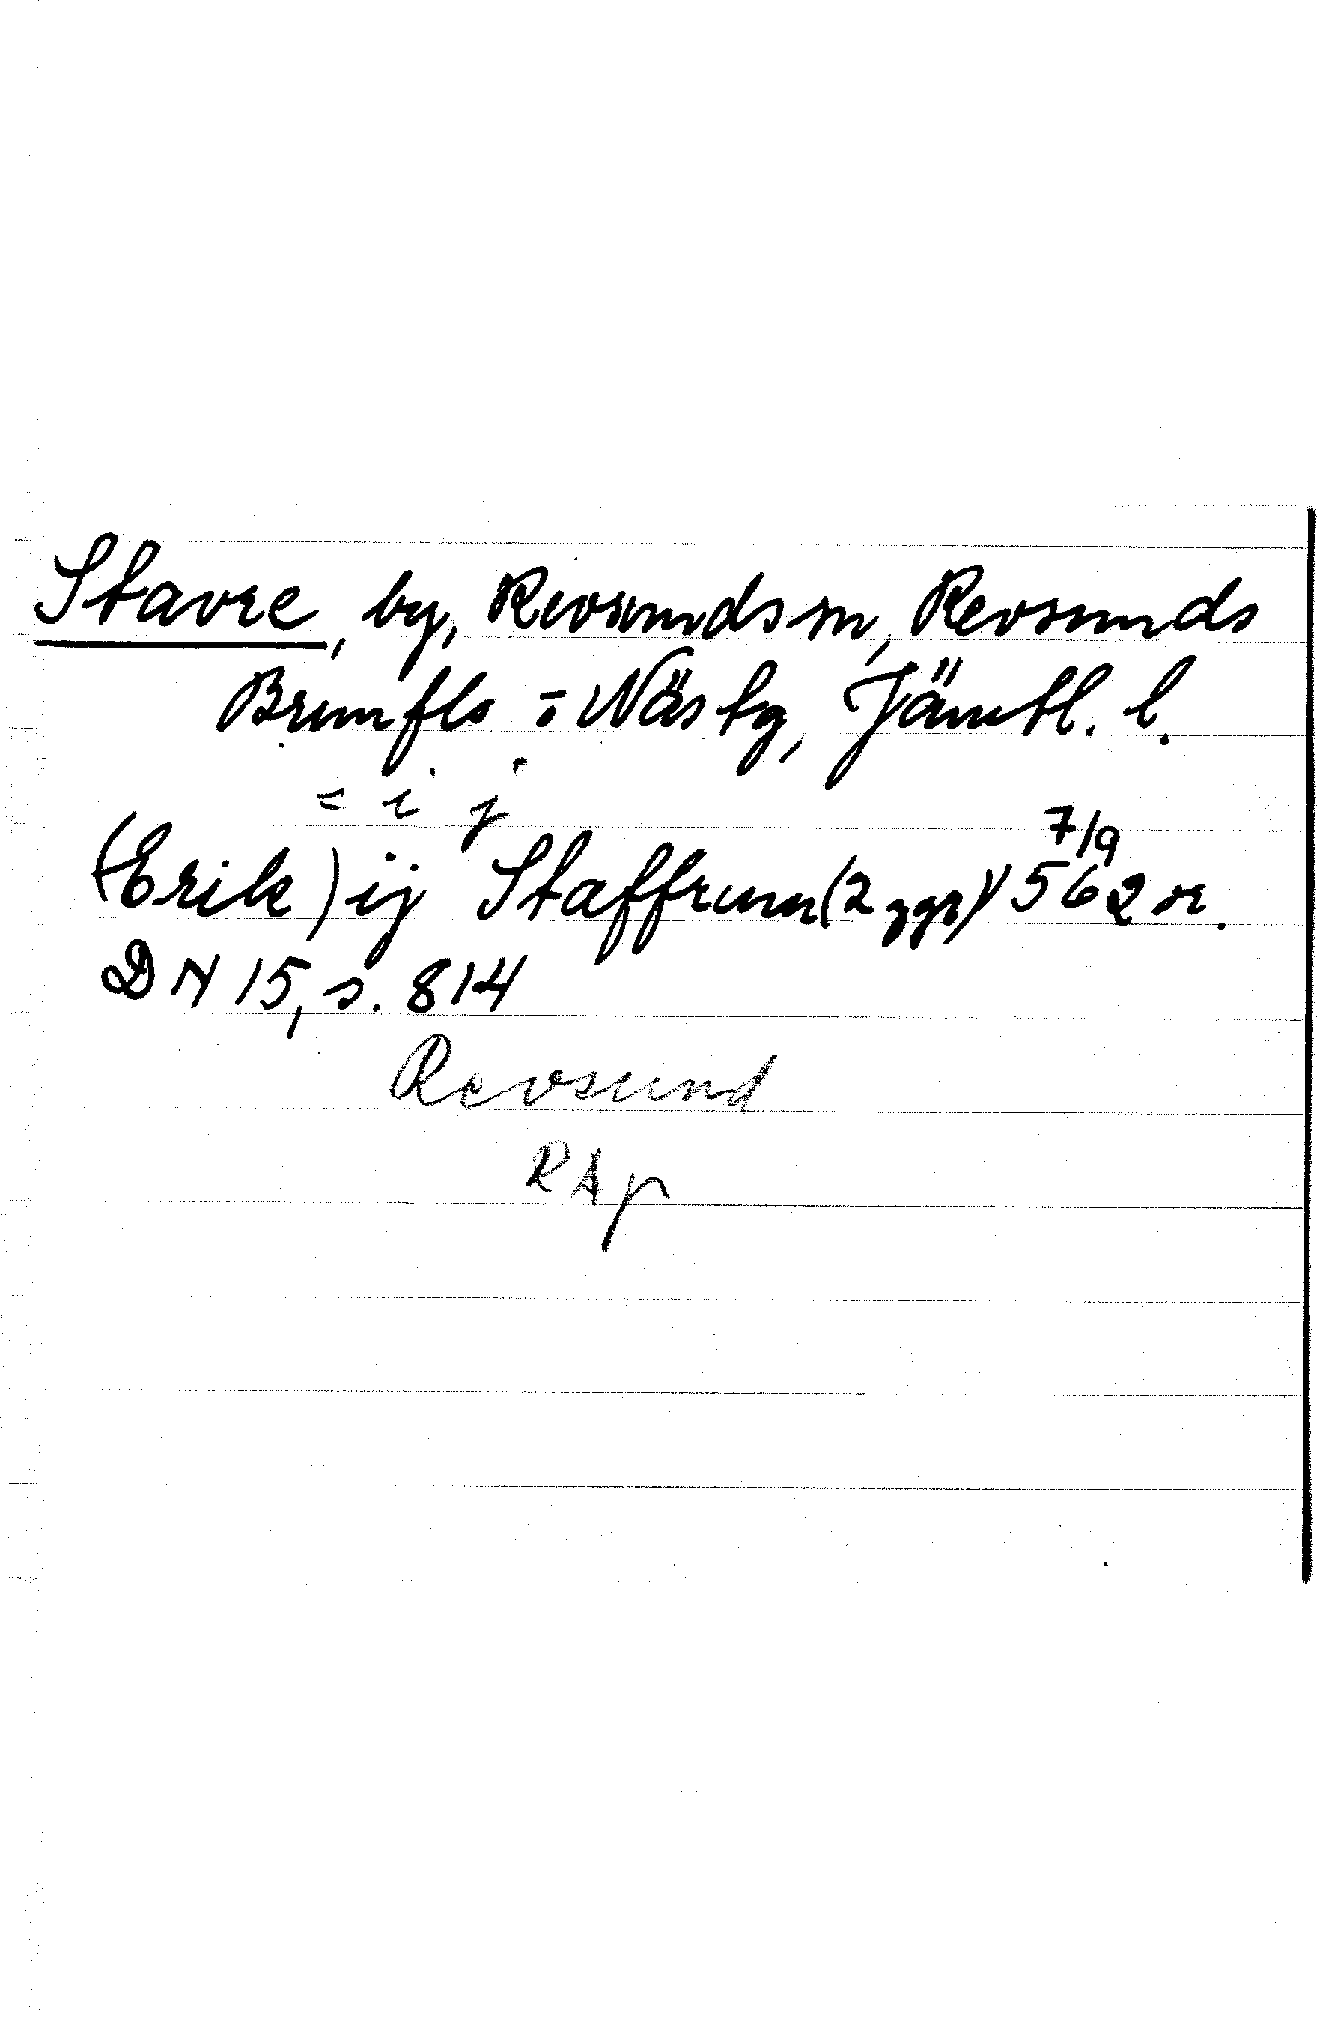 Stavre, by, Revsunds sn, Revsunds
Brunflo o Näs tg, Jämtl. l.
= i j
(Erik) ij Staffrum (2 ggr) 7/9 562 or.
DN 15, s. 814
Revsund
RAp